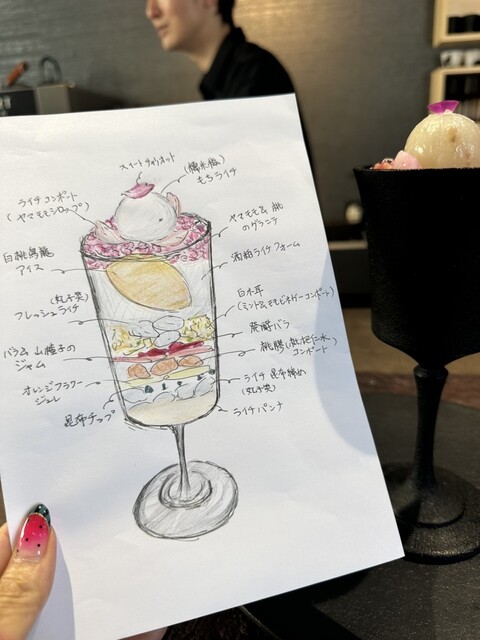 スイートチャリオット
(糯米椒)
もちライチ
ライチコンポート
(ヤマモモシロップ)
ヤマモモ&桃
のグラニテ
白桃烏龍
アイス
酒粕ライチフォーム
(丸子葉)
フレッシュライチ
白木耳
(ミント&モモビネガーコンポート)
発酵バラ
バラ&山査子の
ジャム
桃膠(杏仁水
コンポート)
オレンジフラワー
ジュレ
ライチ昆布締め
昆布チップ
ライチパンナ